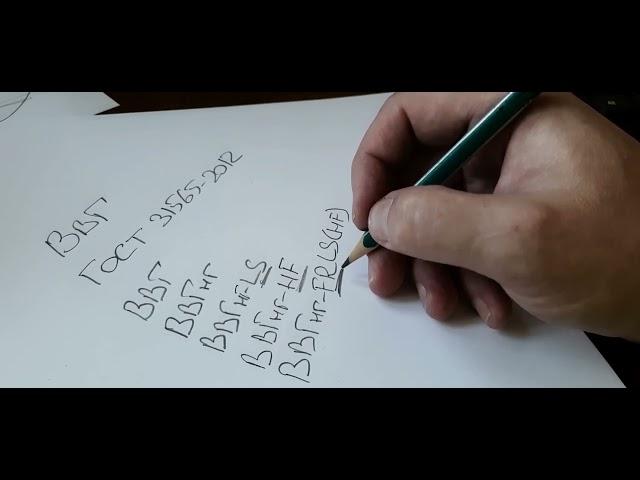 ВВГ
ГОСТ 31565-2012
ВВГ
ВВГнг
ВВГнг-LS
ВВГнг-HF
ВВГнг-FRLS(HF)